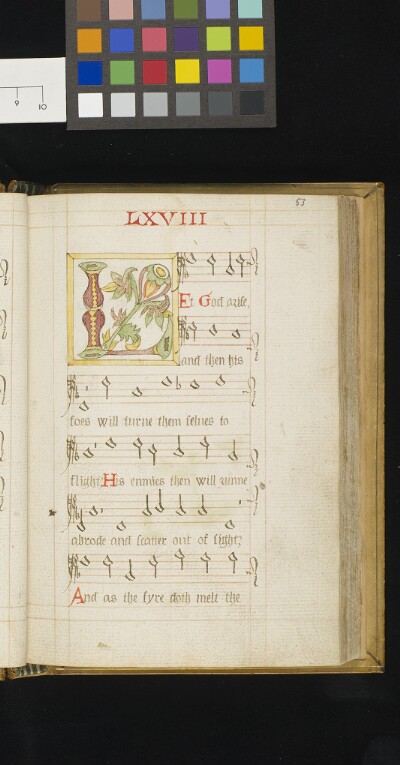 9 10
53
LXVIII
LEt God arise,
and then his
foes will turne them selues to
flight: His enmies then will runne
abrode and scatter out of sight;
And as the fyre doth melt the